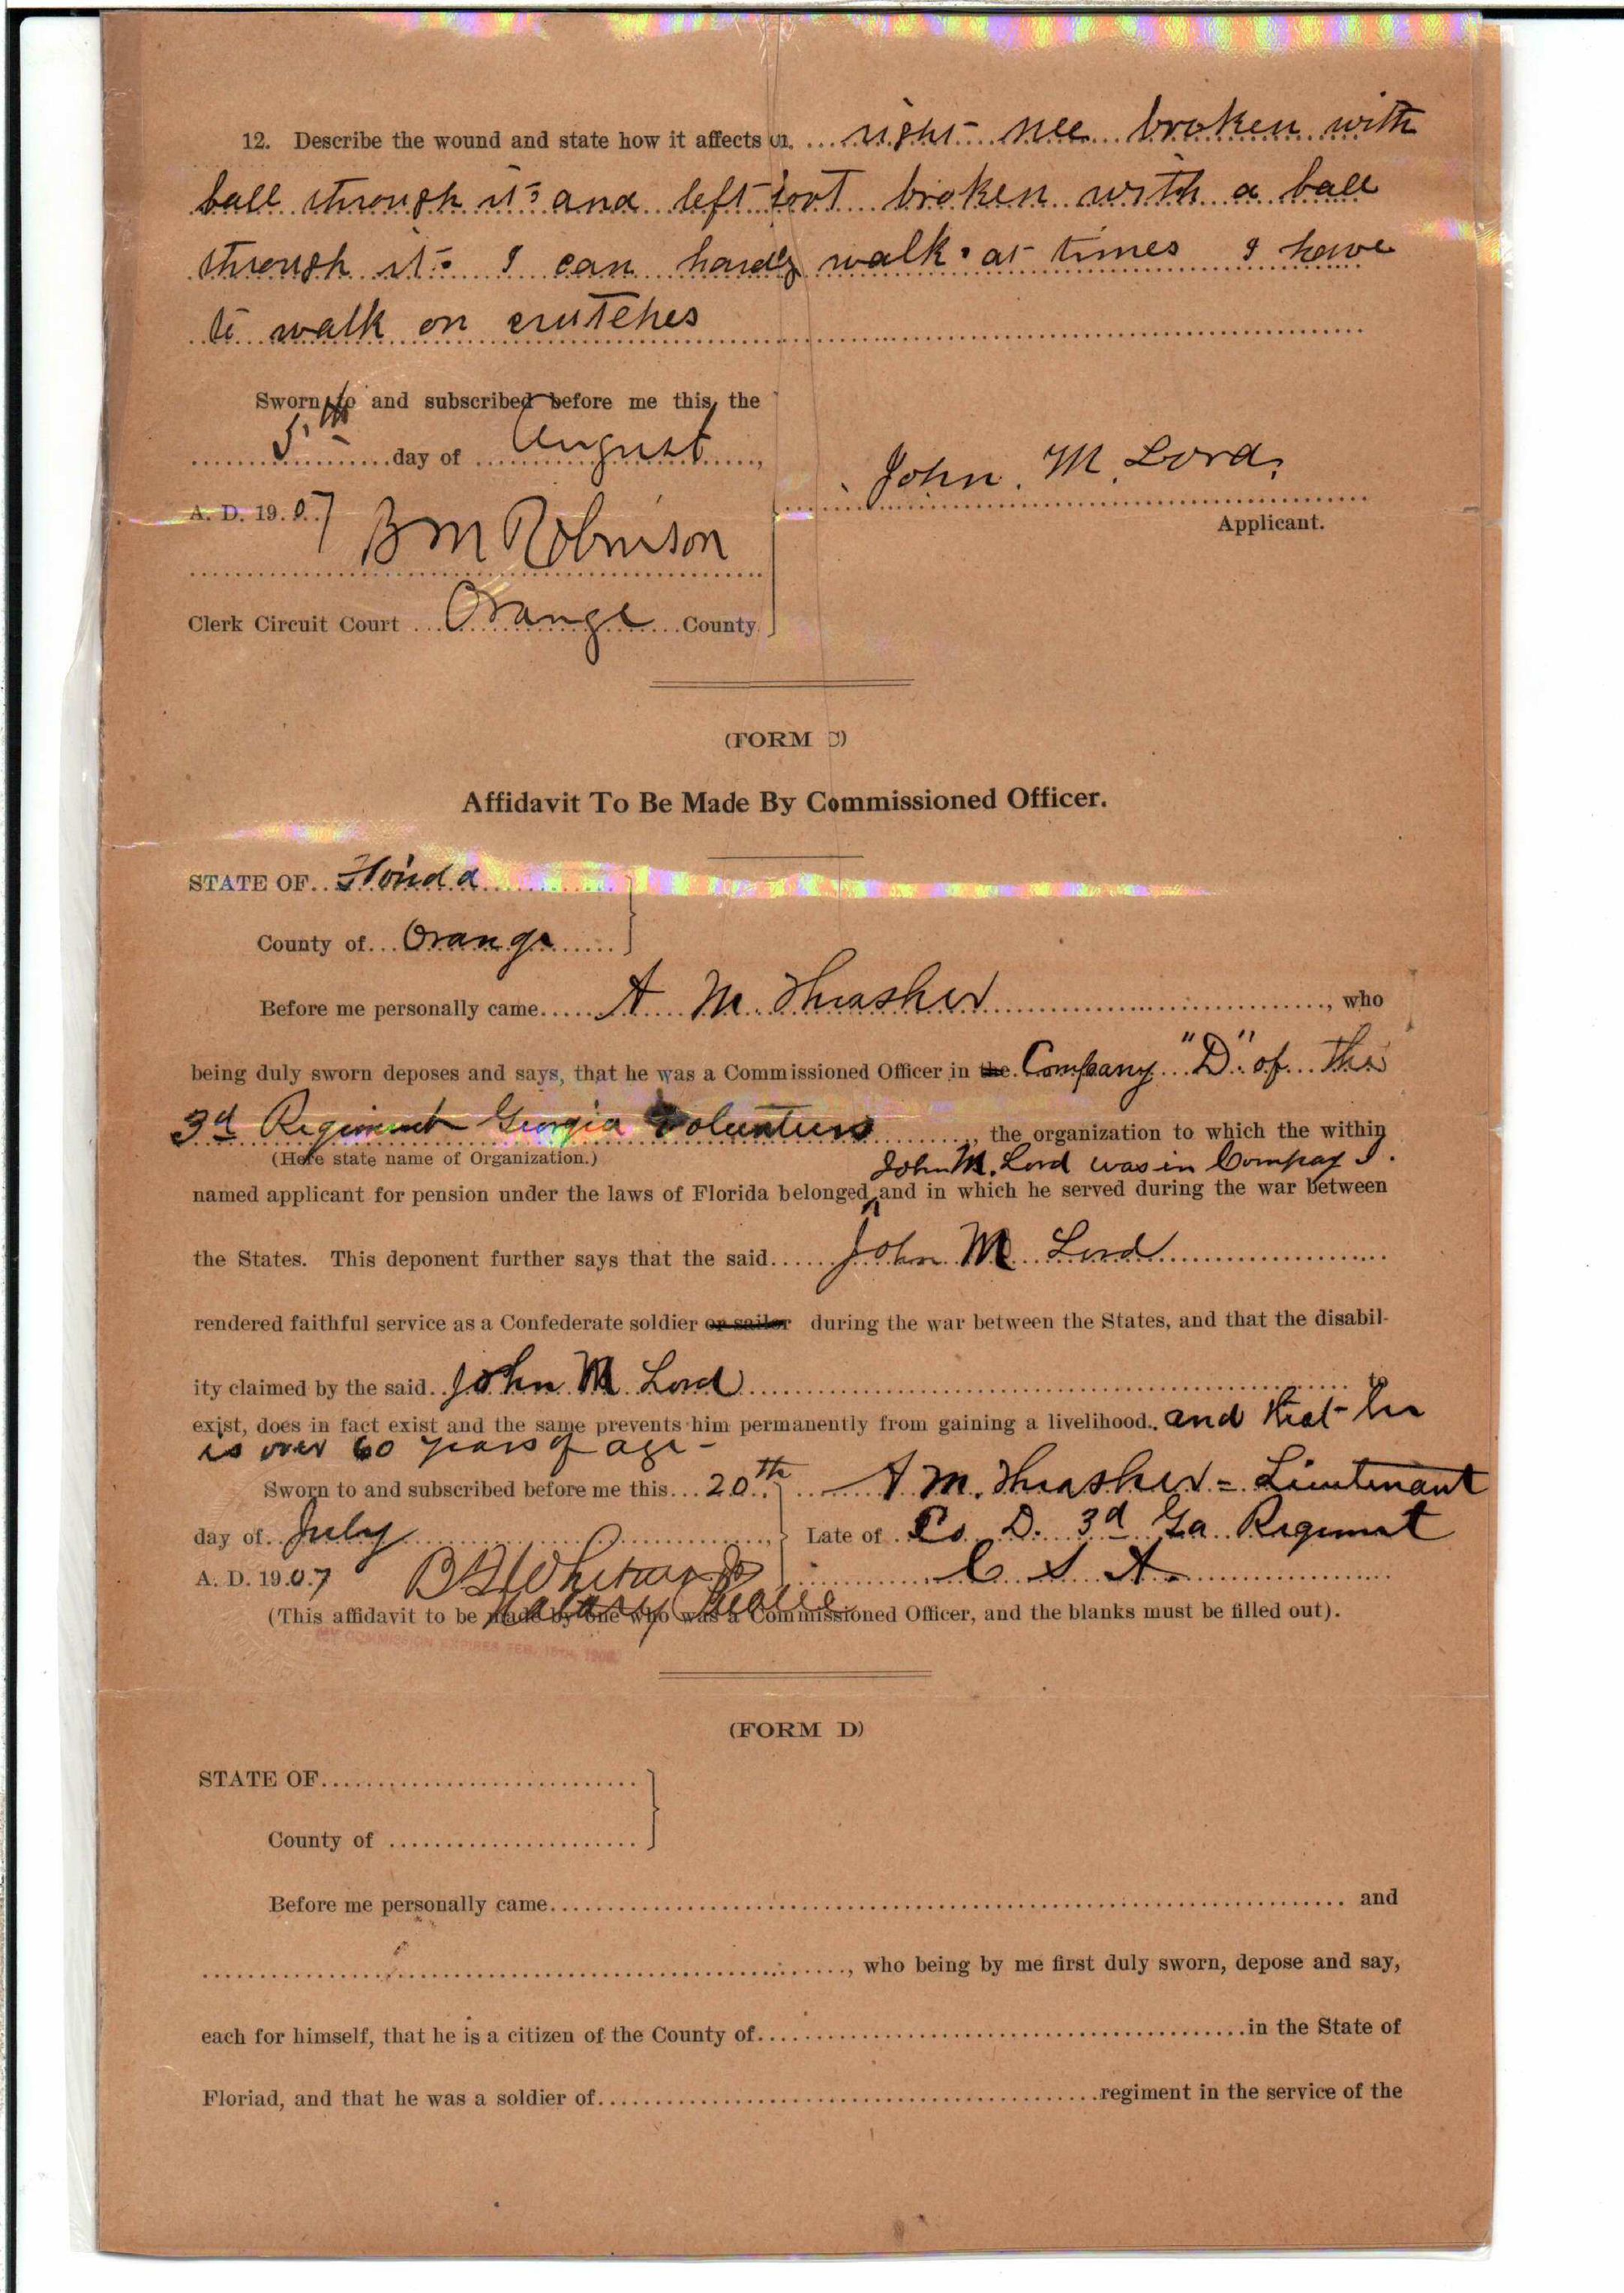 12. Describe the wound and state how it affects you. right nee broken with
ball through it and left foot broken with a ball
through it. I can hardly walk. at times I have
to walk on crutches
Sworn to and subscribed before me this, the
5th day of August,
A. D. 1907
B M Robinson
Clerk Circuit Court Orange County
John. M. Lord.
Applicant.
(FORM C)
Affidavit To Be Made By Commissioned Officer.
STATE OF Florida
County of Orange
Before me personally came A M. Thrasher, who
being duly sworn deposes and says, that he was a Commissioned Officer in the Company "D" of The
3d Regiment Georgia Volunteers, the organization to which the within
(Here state name of Organization.)
John M. Lord was in Compay I.
named applicant for pension under the laws of Florida belonged, and in which he served during the war between
the States. This deponent further says that the said John M Lord
rendered faithful service as a Confederate soldier or sailor during the war between the States, and that the disabil-
ity claimed by the said John M. Lord to
exist, does in fact exist and the same prevents him permanently from gaining a livelihood. and that he
is over 60 years of age -
Sworn to and subscribed before me this 20th
day of July,
A. D. 1907
Notary Public
A M. Thrasher = Lieutenant
Late of Co. D. 3d Ga. Regiment
C S A.
(This affidavit to be made by one who was a Commissioned Officer, and the blanks must be filled out).
MY COMMISSION EXPIRES FEB. 15TH, 1908.
(FORM D)
STATE OF
County of
Before me personally came and
, who being by me first duly sworn, depose and say,
each for himself, that he is a citizen of the County of in the State of
Floriad, and that he was a soldier of regiment in the service of the